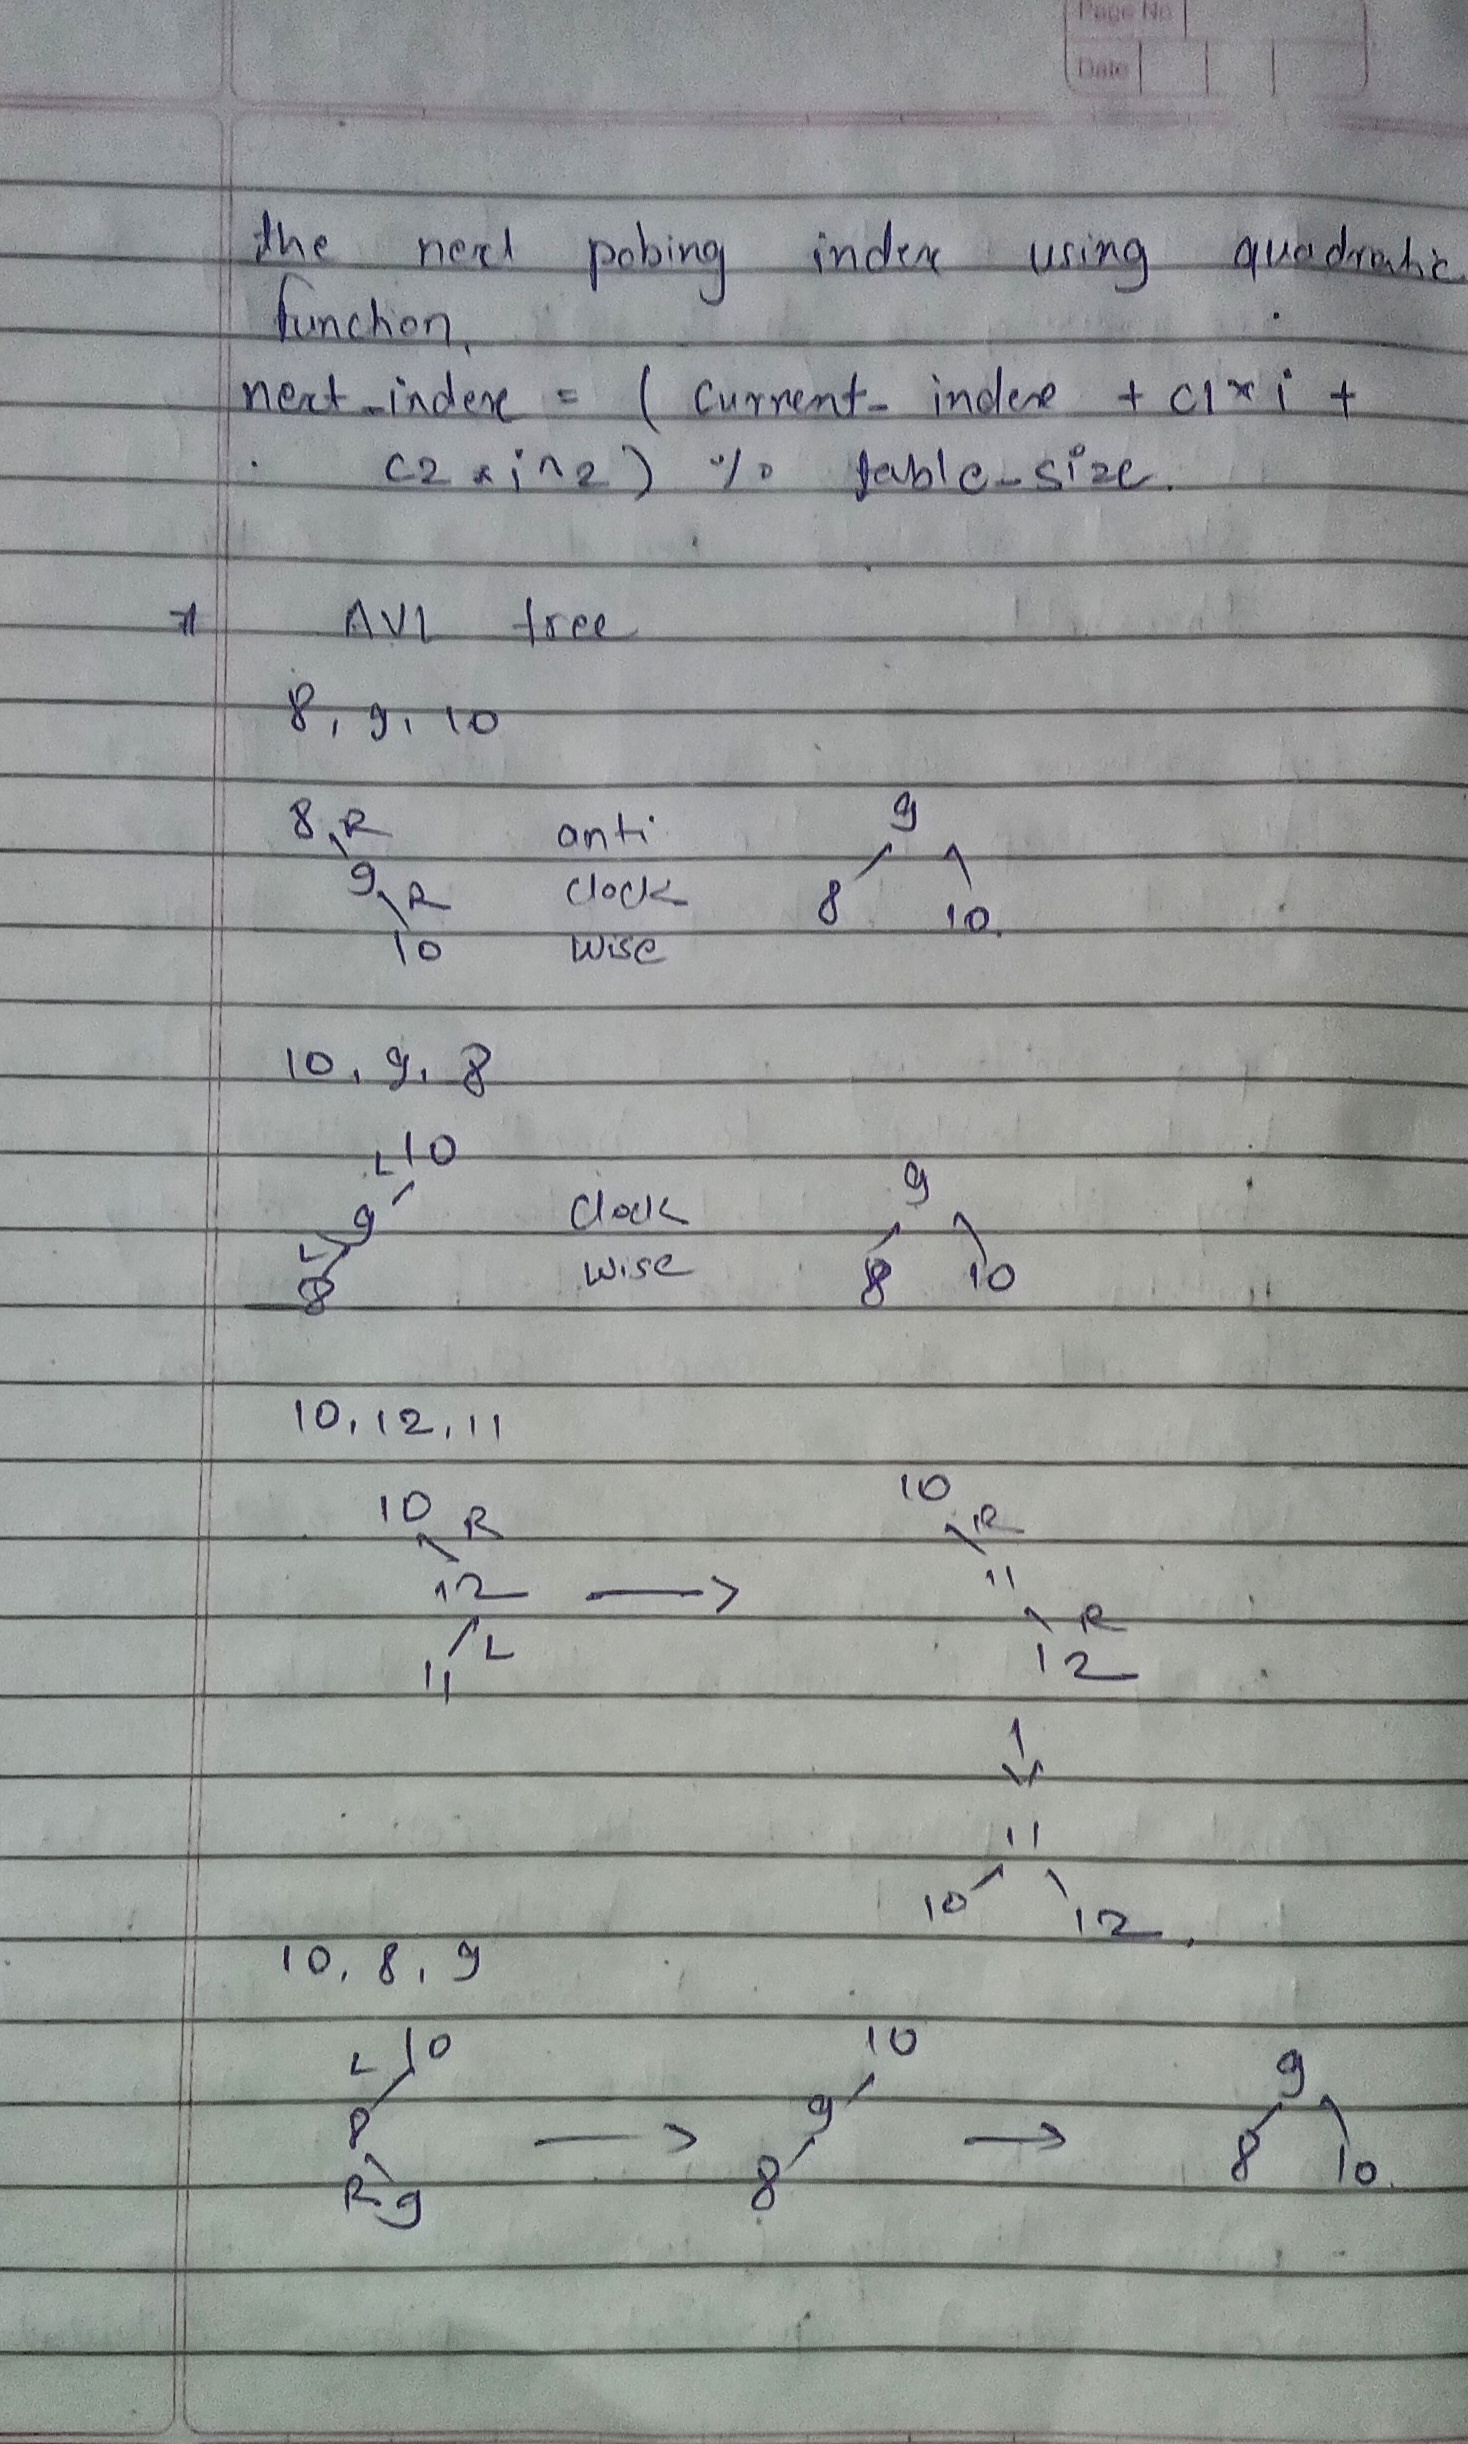 Page No
Date
the next pobing index using quadratic
function,
next_index = ( current_ index + c1*i +
c2*i^2) % table_size.
* AVL tree
8, 9, 10
8 R anti 9
9 R clock 8 10.
10 wise
10, 9, 8
L 10
9 clock 9
L 8 wise 8 10
10, 12, 11
10 R 10 R
12 → 11
11 L R
12
↓
11
10 12.
10, 8, 9
L 10 10 9
8 → 9 → 8 10.
R 9 8